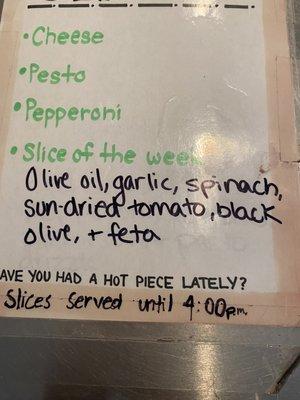 • Cheese
• Pesto
• Pepperoni
• Slice of the week
Olive oil, garlic, spinach,
sun-dried tomato, black
olive, + feta
AVE YOU HAD A HOT PIECE LATELY?
Slices served until 4:00pm.